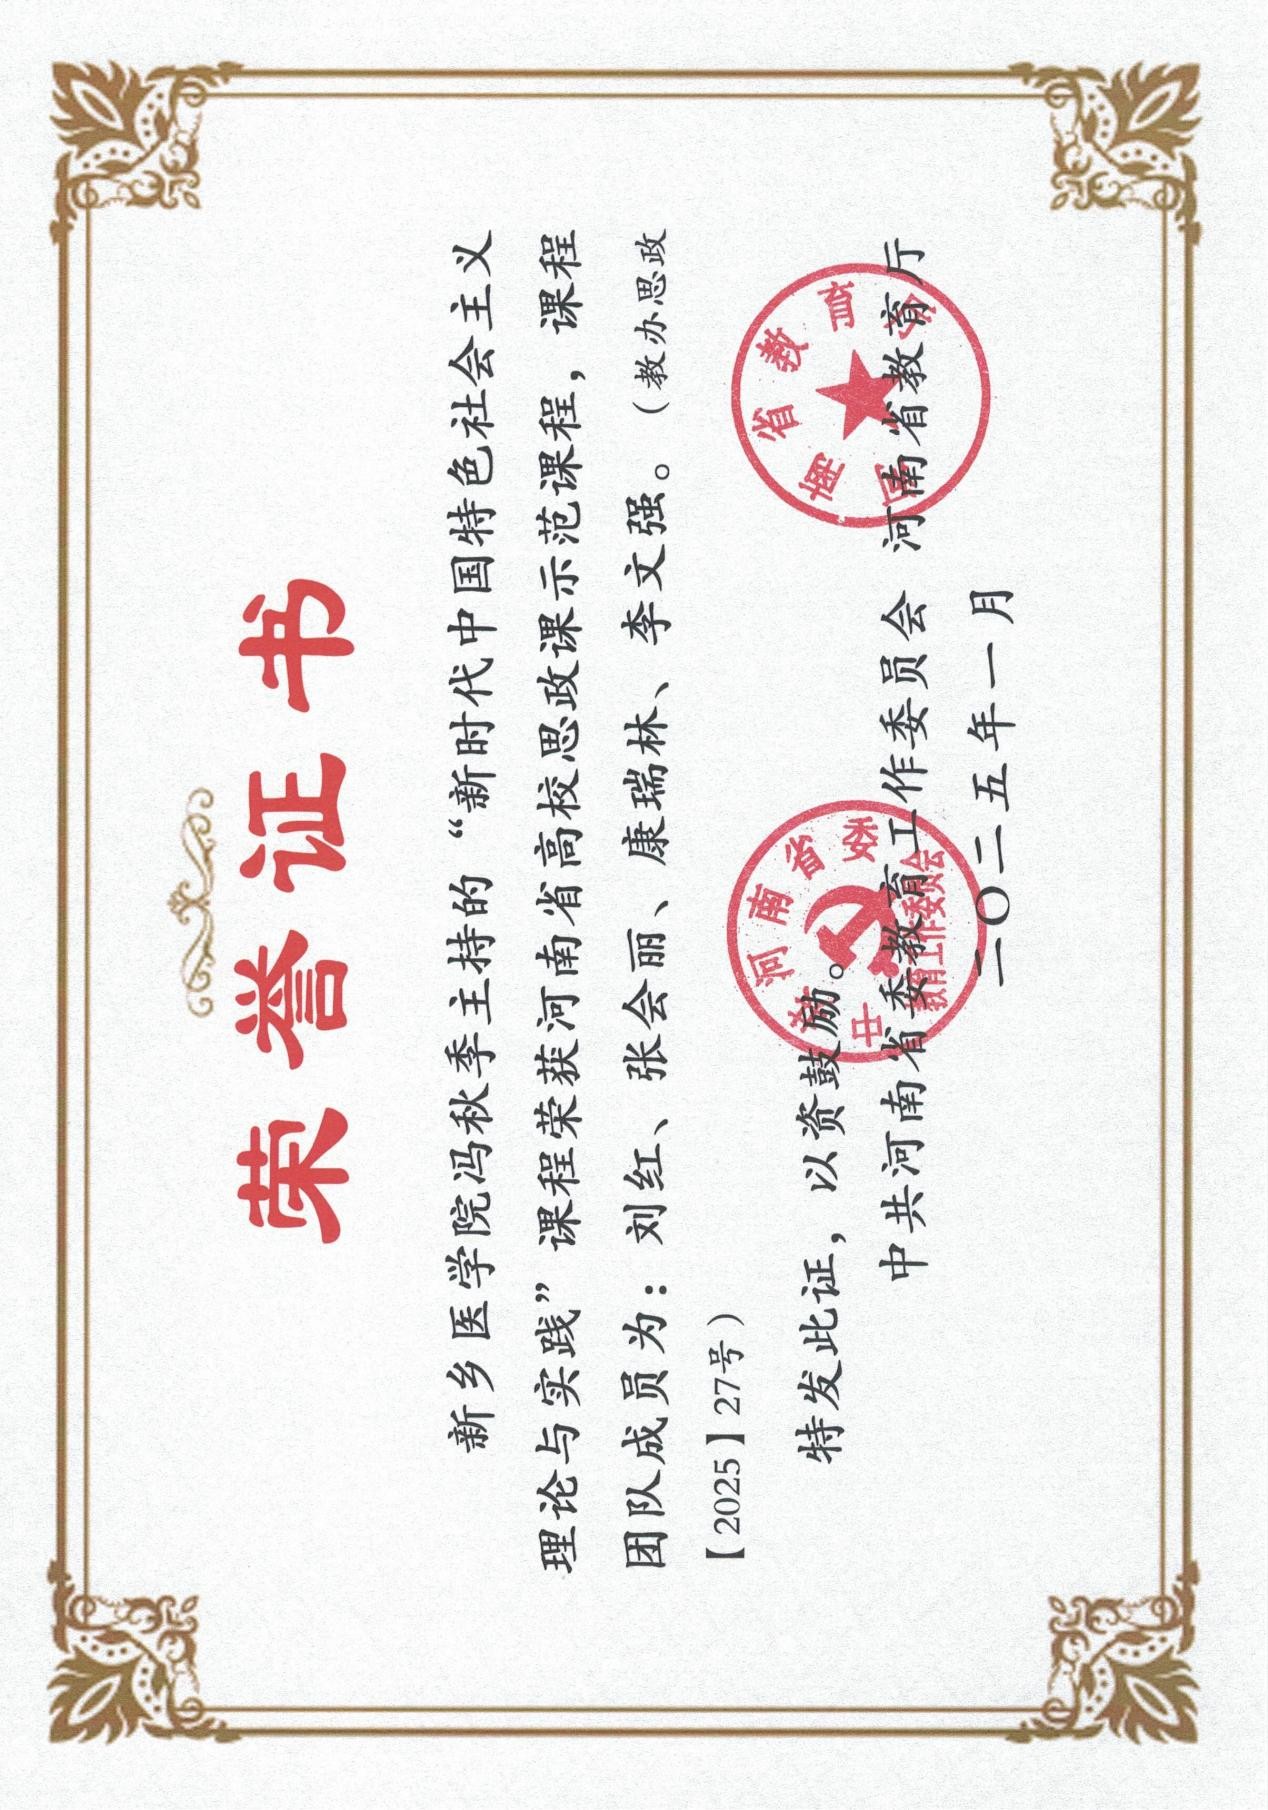 荣誉证书
新乡医学院冯秋季主持的“新时代中国特色社会主义
理论与实践”课程荣获河南省高校思政课示范课程，课程
团队成员为：刘红、张会丽、康瑞林、李文强。（教办思政
【2025】27号）
特发此证，以资鼓励。
中共河南省委教育工作委员会 河南省教育厅
二〇二五年一月
中共河南省委
教育工作委员会
河南省教育厅